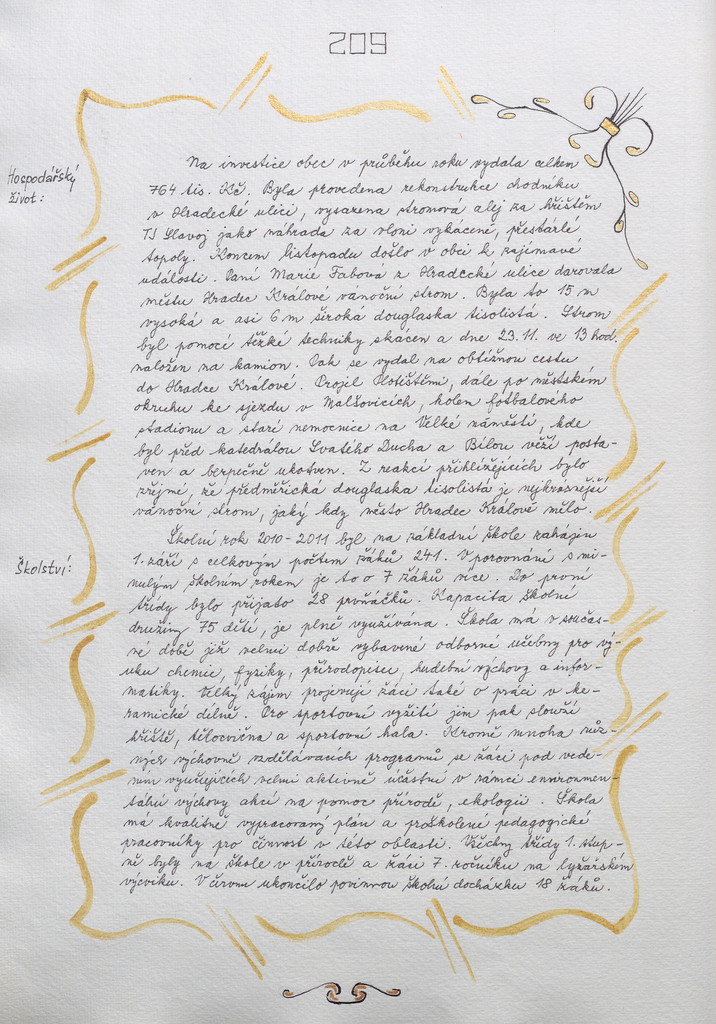 209
Hospodářský
život:
Na investice obec v průběhu roku vydala celkem
764 tis. Kč. Byla provedena rekonstrukce chodníku
v Hradecké ulici, vysazena stromová alej za hřištěm
TJ Slavoj jako náhrada za vloni vykácené, přestárlé
topoly. Koncem listopadu došlo v obci k zajímavé
události. Paní Marie Fabová z Hradecké ulice darovala
městu Hradec Králové vánoční strom. Byla to 15 m
vysoká a asi 6 m široká douglaska tisolistá. Strom
byl pomocí těžké techniky skácen a dne 23.11. ve 13 hod.
naložen na kamion. Pak se vydal na obtížnou cestu
do Hradce Králové. Projel Plotištěmi, dále po městském
okruhu ke sjezdu v Malšovicích, kolem fotbalového
stadionu a staré nemocnice na Velké náměstí, kde
byl před katedrálou Svatého Ducha a Bílou věží posta-
ven a bezpečně ukotven. Z reakcí přihlížejících bylo
zřejmé, že předměřická douglaska tisolistá je nejkrásnější
vánoční strom, jaký kdy město Hradec Králové mělo.
Školství:
Školní rok 2010-2011 byl na základní škole zahájen
1. září s celkovým počtem žáků 241. V porovnání s mi-
nulým školním rokem je to o 7 žáků více. Do první
třídy bylo přijato 28 prvňáčků. Kapacita školní
družiny 75 dětí, je plně využívána. Škola má v součas-
né době již velmi dobře vybavené odborné učebny pro vý-
uku chemie, fyziky, přírodopisu, hudební výchovy a infor-
matiky. Velký zájem projevují žáci také o práci v ke-
ramické dílně. Pro sportovní vyžití jim pak slouží
hřiště, tělocvična a sportovní hala. Kromě mnoha růz-
ných výchovně vzdělávacích programů se žáci pod vede-
ním vyučujících velmi aktivně účastní v rámci environmen-
tální výchovy akcí na pomoc přírodě, ekologii. Škola
má kvalitně vypracovaný plán a proškolené pedagogické
pracovníky pro činnost v této oblasti. Všechny třídy 1. stup-
ně byly na škole v přírodě a žáci 7. ročníku na lyžařském
výcviku. V červnu ukončilo povinnou školní docházku 18 žáků.